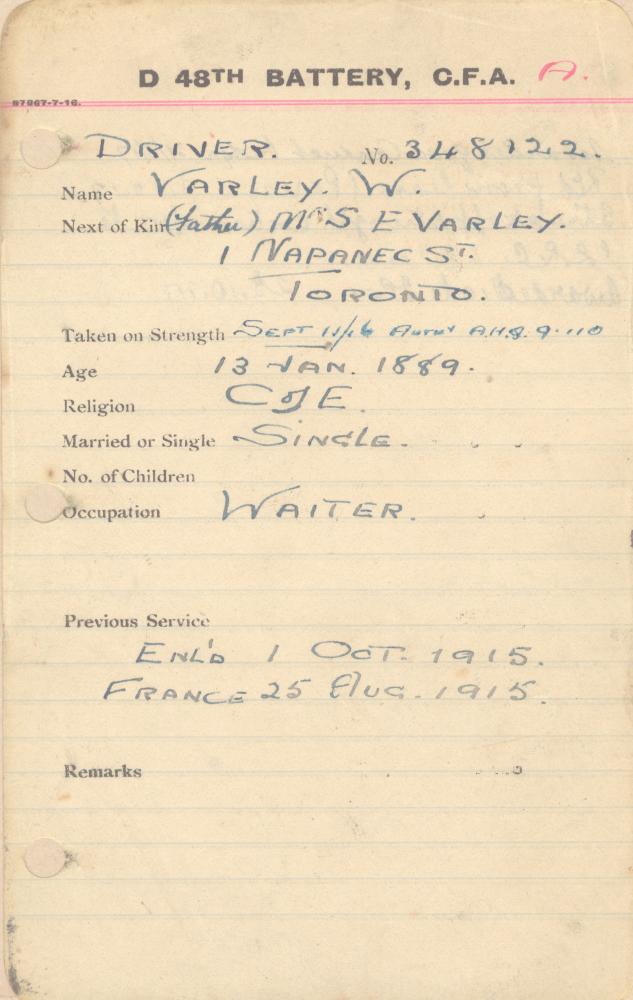 D 48TH BATTERY, C.F.A. A.
97967-7-16.
DRIVER. No. 348122.
Name VARLEY. W.
Next of Kin (Father) Mr S E VARLEY.
1 NAPANEC ST.
TORONTO.
Taken on Strength SEPT 11/16 AUTHY A.H.Q. 9-110
Age 13 JAN. 1889.
Religion C of E.
Married or Single SINGLE.
No. of Children
Occupation WAITER.
Previous Service
ENL'D 1 OCT. 1915.
FRANCE 25 AUG. 1915.
Remarks